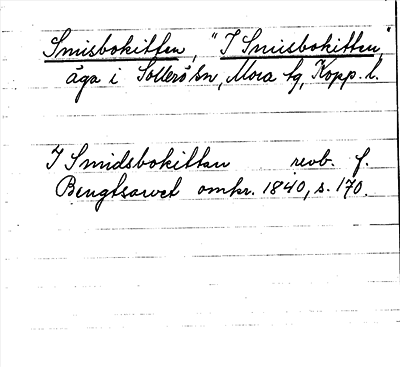 Smisbokitten, "I Smisbokitten,"
äga i Sollerö sn, Mora tg, Kopp. l.
I Smidsbokittan revb. f.
Bengtsarvet omkr. 1840, s. 170.